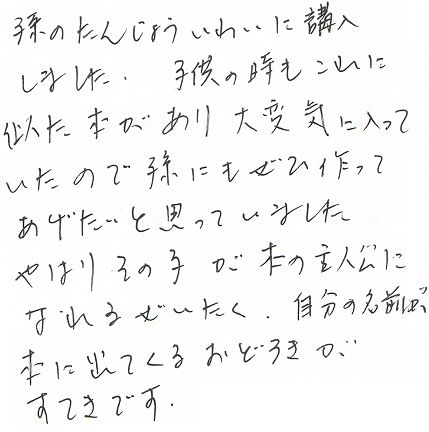 孫のたんじょういわいに講入
しました. 子供の時もこれに
似た本があり大変気に入って
いたので孫にもぜひ作って
あげたいと思っていました
やはりその子が本の主人公に
なれるぜいたく. 自分の名前が
本に出てくるおどろきが
すてきです.